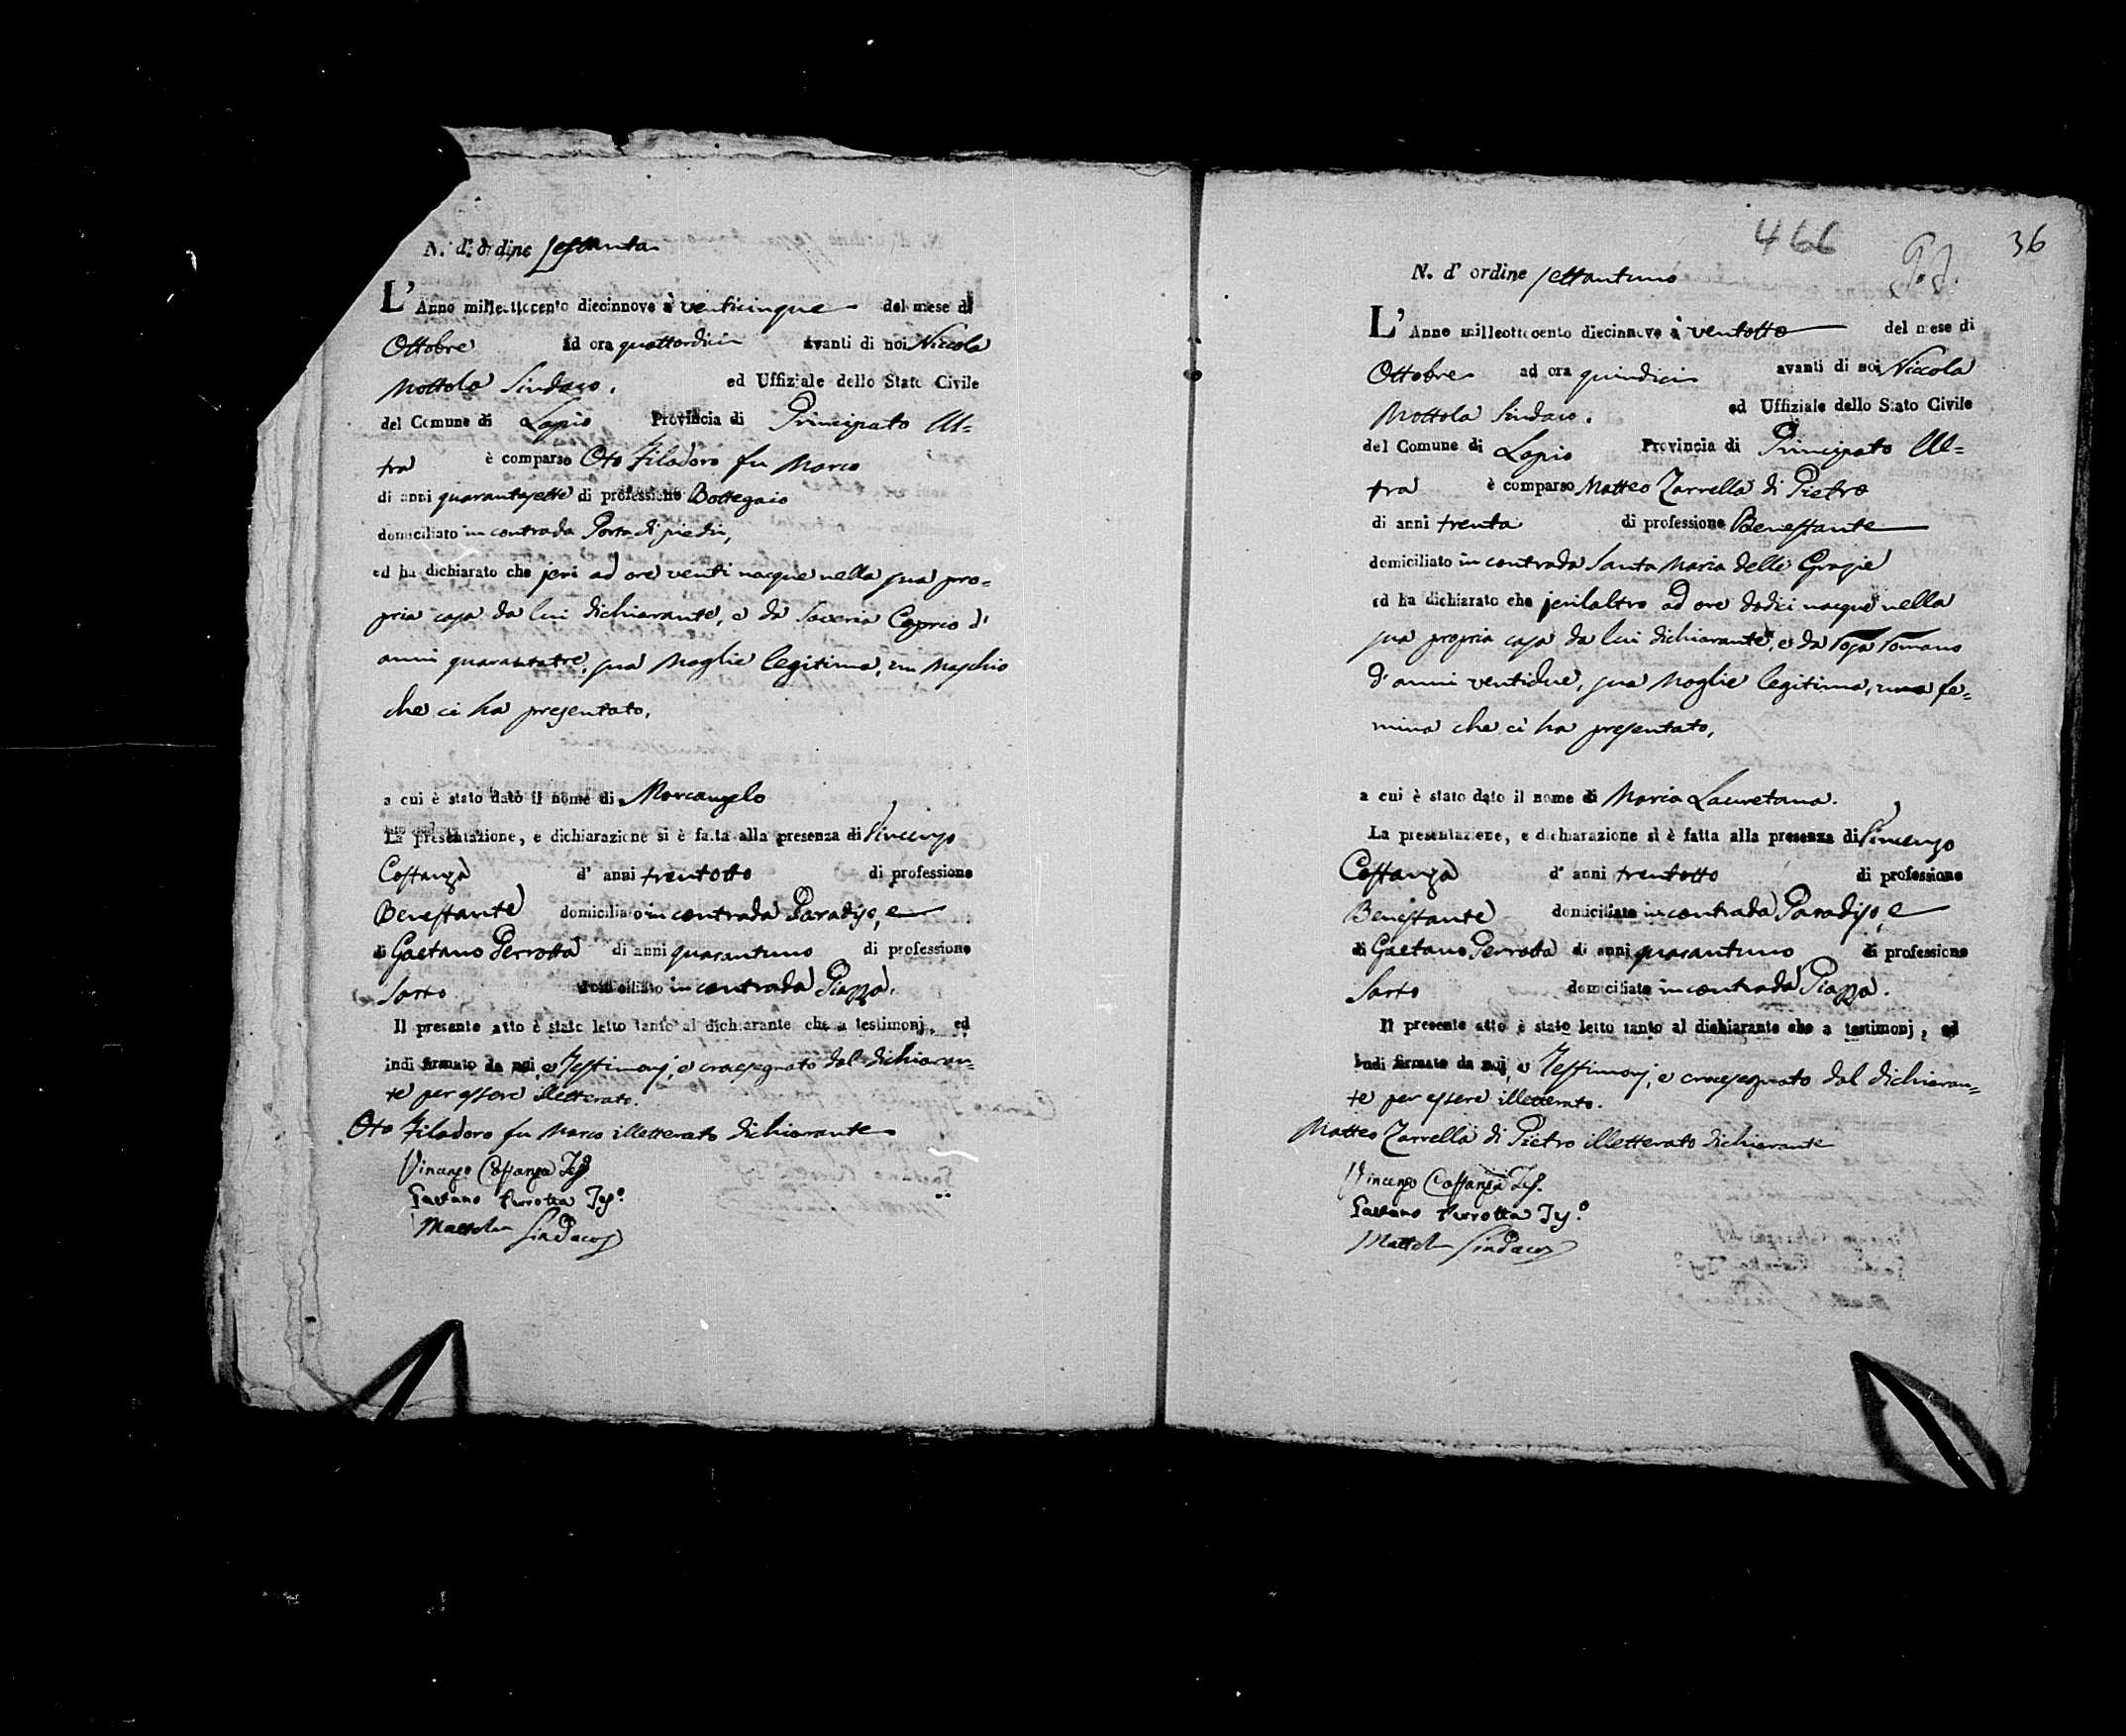 N. d'ordine settanta
L'Anno milleottocento diecinnove à venticinque del mese di
Ottobre ad ora quattordici avanti di noi Niccola
Mottola Sindaco. ed Uffiziale dello Stato Civile
del Comune di Lapio Provincia di Principato Ul=
tra è comparso Oto Filadoro fu Marco
di anni quarantasette di professione Bottegaio
domiciliato in contrada Porta di piedi,
ed ha dichiarato che jeri ad ore venti nacque nella sua pro=
pria casa da lui dichiarante, e da Saveria Caprio d'
anni quarantatre, sua Moglie legitima, un Maschio
che ci ha presentato,
a cui è stato dato il nome di Marcangelo
La presentazione, e dichiarazione si è fatta alla presenza di Vincenzo
Costanza d'anni trentotto di professione
Benestante domiciliato in contrada Paradiso, e
di Gaetano Perrotta di anni quarantuno di professione
Sarto domiciliato in contrada Piazza.
Il presente atto è stato letto tanto al dichiarante che a testimonj, ed
indi firmato da noi, e Testimonj, e crocesegnato dal dichiaran=
te per essere illetterato.
Oto Filadoro fu Marco illetterato dichiarante
Vincenzo Costanza Tes.
Gaetano Perrotta Tes.o
Mottola Sindaco
466 36
N. d'ordine settantuno
L'Anno milleottocento diecinnove à ventotto del mese di
Ottobre ad ora quindici avanti di noi Niccola
Mottola Sindaco. ed Uffiziale dello Stato Civile
del Comune di Lapio Provincia di Principato Ul=
tra è comparso Matteo Zarrella di Pietro
di anni trenta di professione Benestante
domiciliato in contrada Santa Maria delle Grazie
ed ha dichiarato che jerilaltro ad ore dodici nacque nella
sua propria casa da lui dichiarante, e da Rosa Romano
d'anni ventidue, sua Moglie legitima, una fe=
mina che ci ha presentato,
a cui è stato dato il nome di Maria Lauretana.
La presentazione, e dichiarazione si è fatta alla presenza di Vincenzo
Costanza d'anni trentotto di professione
Benestante domiciliato in contrada Paradiso, e
di Gaetano Perrotta di anni quarantuno di professione
Sarto domiciliato in contrada Piazza.
Il presente atto è stato letto tanto al dichiarante che a testimonj, ed
indi firmato da noi, e Testimonj, e crocesegnato dal dichiaran=
te per essere illetterato.
Matteo Zarrella di Pietro illetterato dichiarante
Vincenzo Costanza Tes.
Gaetano Perrotta Tes.o
Mottola Sindaco